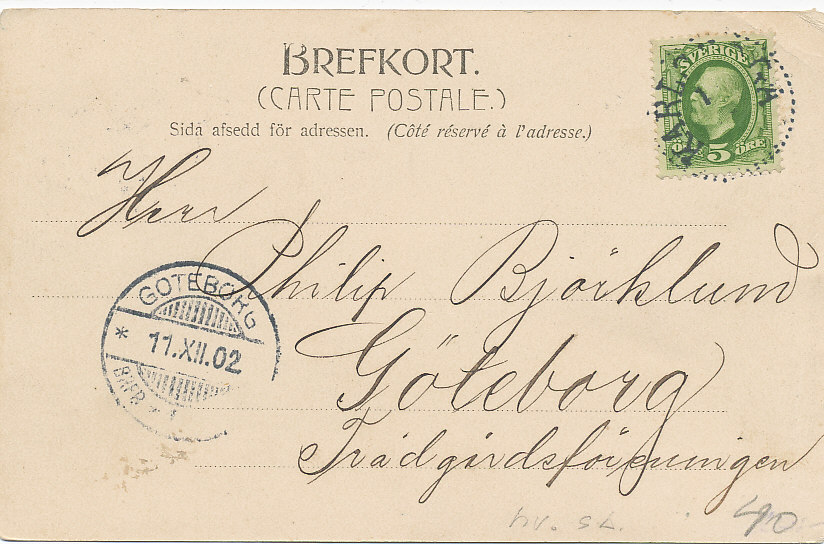 BREFKORT.
(CARTE POSTALE.)
Sida afsedd för adressen. (Côté réservé à l'adresse.)
SVERIGE
5
ÖRE ÖRE
Herr
Philip Björklund
Göteborg
Trädgårdsföreningen
GÖTEBORG
* 11.XII.02
hv. sk.
40:-